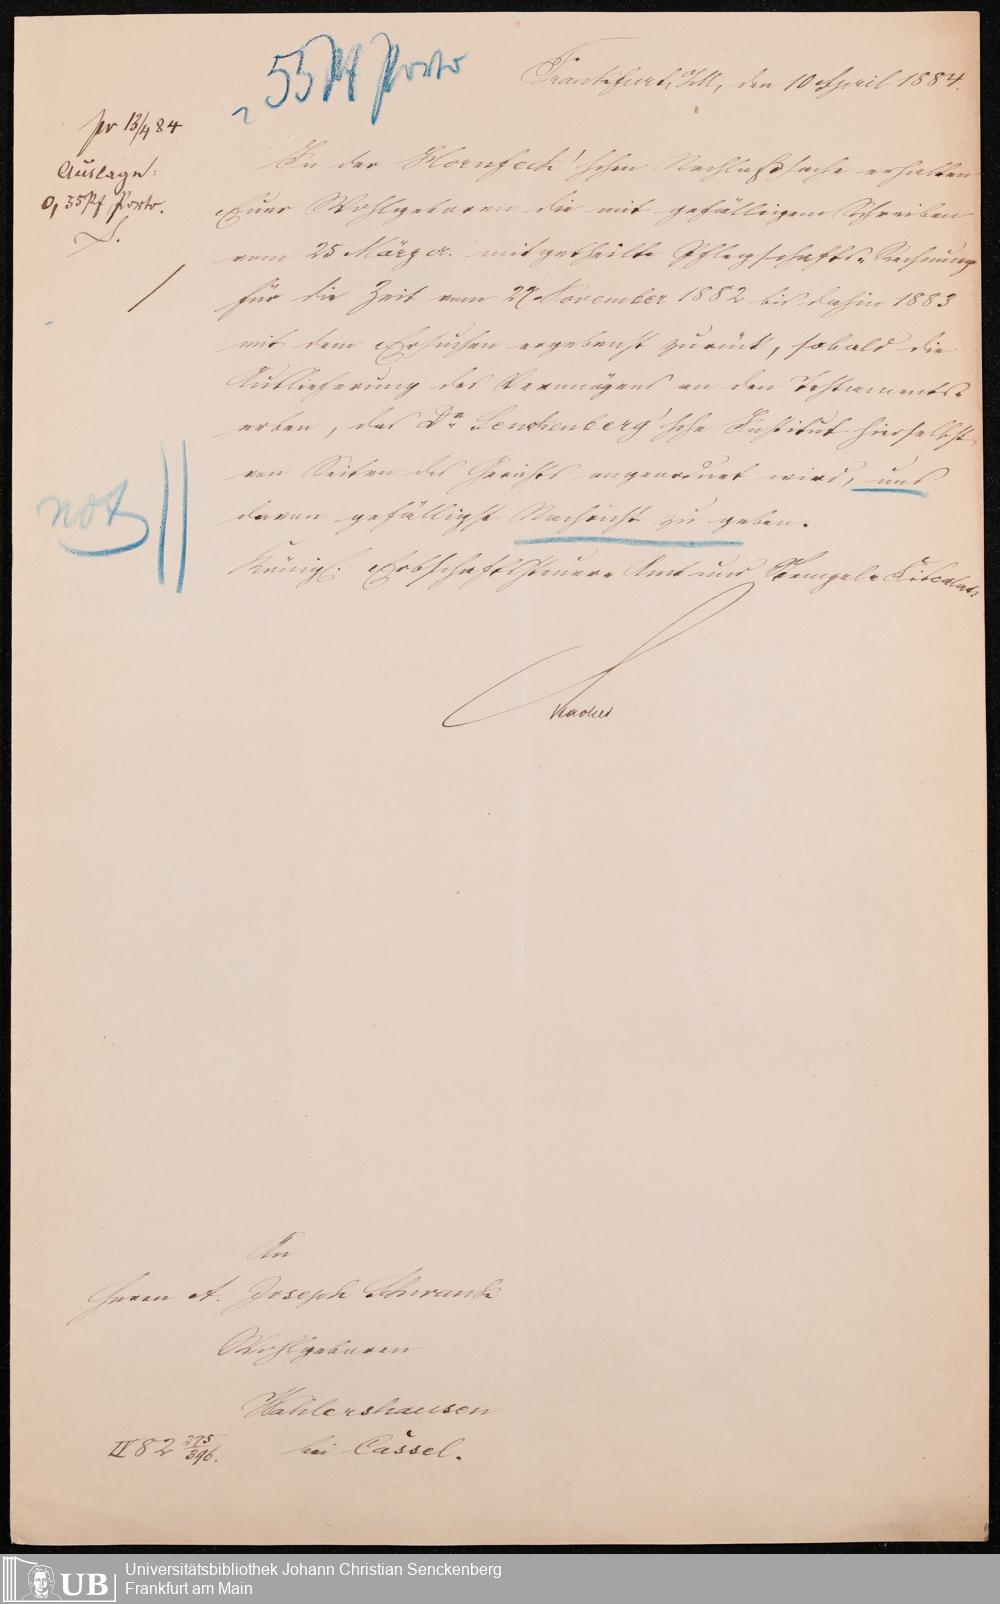 55 Pf Porto
Frankfurt a/M, den 10 April 1884.
pr 13/4 84
Auslage:
0,35 Pf Porto.
In der Hornfeck'schen Nachlaßsache erhalten
Euer Wohlgeboren die mit gefälligem Schreiben
vom 25 März cr. mitgetheilte Pflegschafts-Rechnung
für die Zeit vom 27 November 1882 bis dahin 1883
mit dem Ersuchen ergebenst zurück, sobald die
Auslieferung des Vermögens an den Testaments-
erben, das Dr Senckenberg'sche Institut hierselbst
von Seiten des Gerichts angeordnet wird, uns
davon gefälligst Nachricht zu geben.
not
Königl. Erbschaftssteuer-Amt und Stempel-Fiscalat
An
Herrn A. Joseph Schrank
Wohlgeboren
Wahlershausen
bei Cassel.
II 82 275/396.
Universitätsbibliothek Johann Christian Senckenberg
Frankfurt am Main
UB